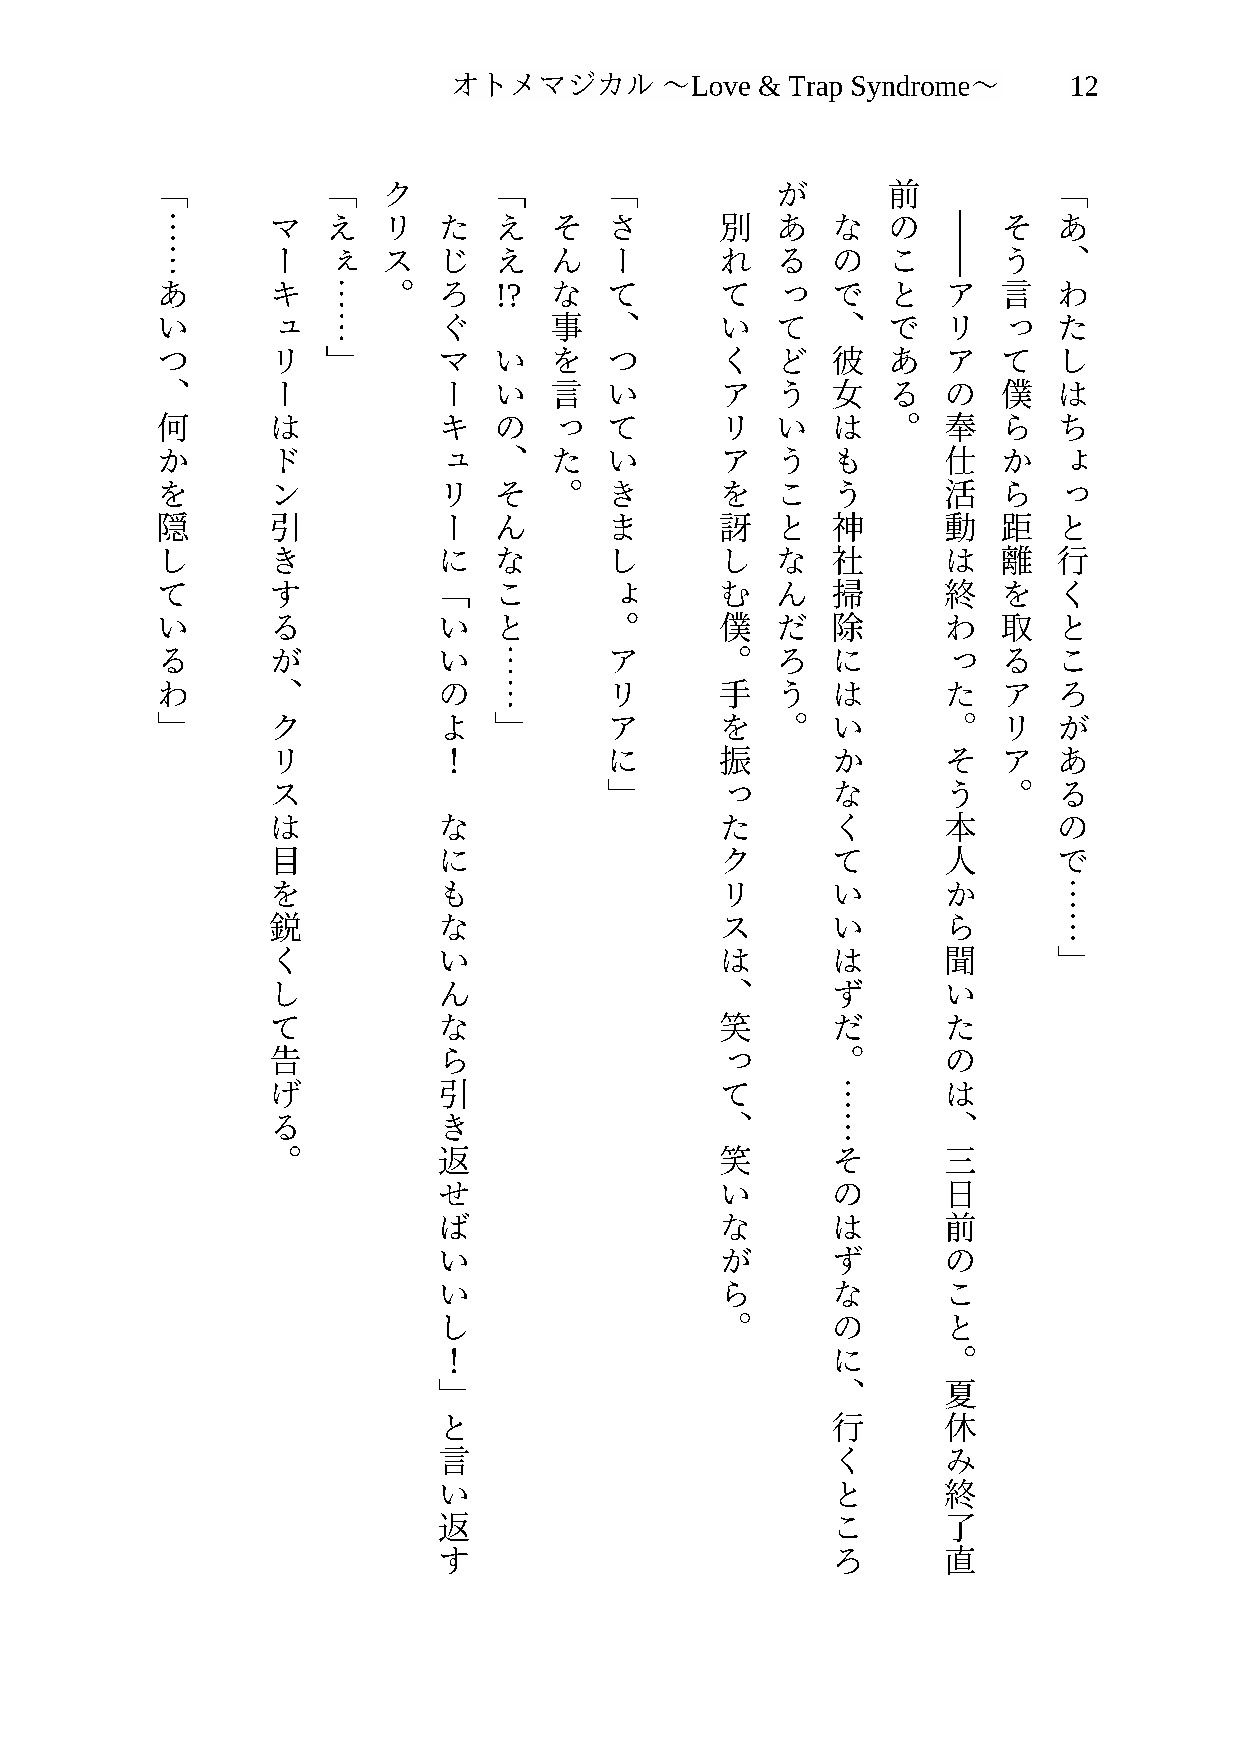 オトメマジカル ～Love & Trap Syndrome～ 12
「あ、わたしはちょっと行くところがあるので……」
そう言って僕らから距離を取るアリア。
――アリアの奉仕活動は終わった。そう本人から聞いたのは、三日前のこと。夏休み終了直
前のことである。
なので、彼女はもう神社掃除にはいかなくていいはずだ。……そのはずなのに、行くところ
があるってどういうことなんだろう。
別れていくアリアを訝しむ僕。手を振ったクリスは、笑って、笑いながら。
「さーて、ついていきましょ。アリアに」
そんな事を言った。
「ええ!? いいの、そんなこと……」
たじろぐマーキュリーに「いいのよ! なにもないんなら引き返せばいいし!」と言い返す
クリス。
「えぇ……」
マーキュリーはドン引きするが、クリスは目を鋭くして告げる。
「……あいつ、何かを隠しているわ」